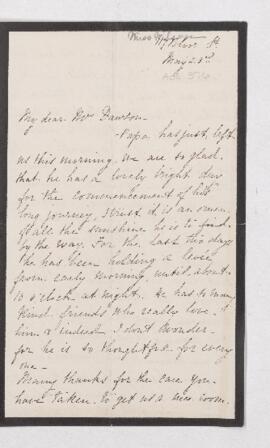 May 23rd
My dear Mrs Dawson -
- Papa has just left
us this morning. We are so glad
that he has a lovely bright day
for the commencement of his
long journey, I trust it is an omen
of all the sunshine he is to find
by the way. For the last two days
he has been holding a levee
from early morning until about
10 o'clock at night. He has so many
kind friends who really love
him & indeed I don't wonder -
for he is so thoughtful for every
one -
Many thanks for the care you
have taken to get us a nice room.